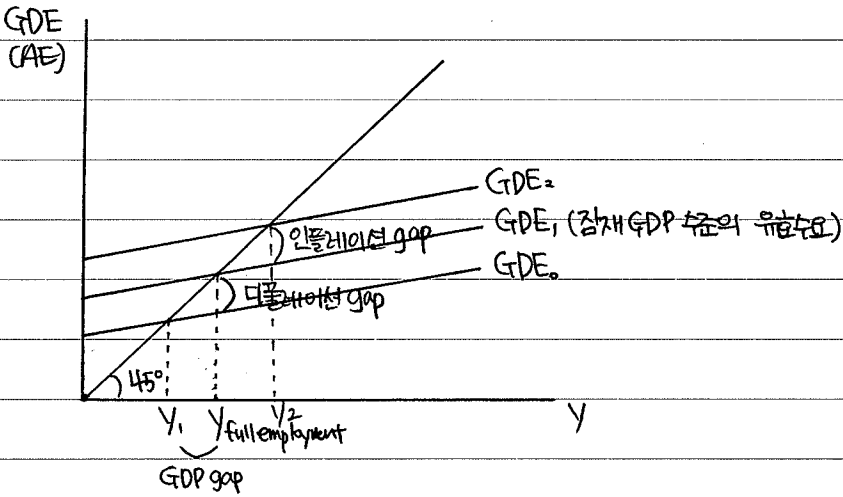 GDE
(AE)
GDE₂
GDE₁ (잠재GDP 수준의 유효수요)
인플레이션 gap
GDE₀
디플레이션 gap
45°
Y₁
Y full employment
Y₂
Y
GDP gap